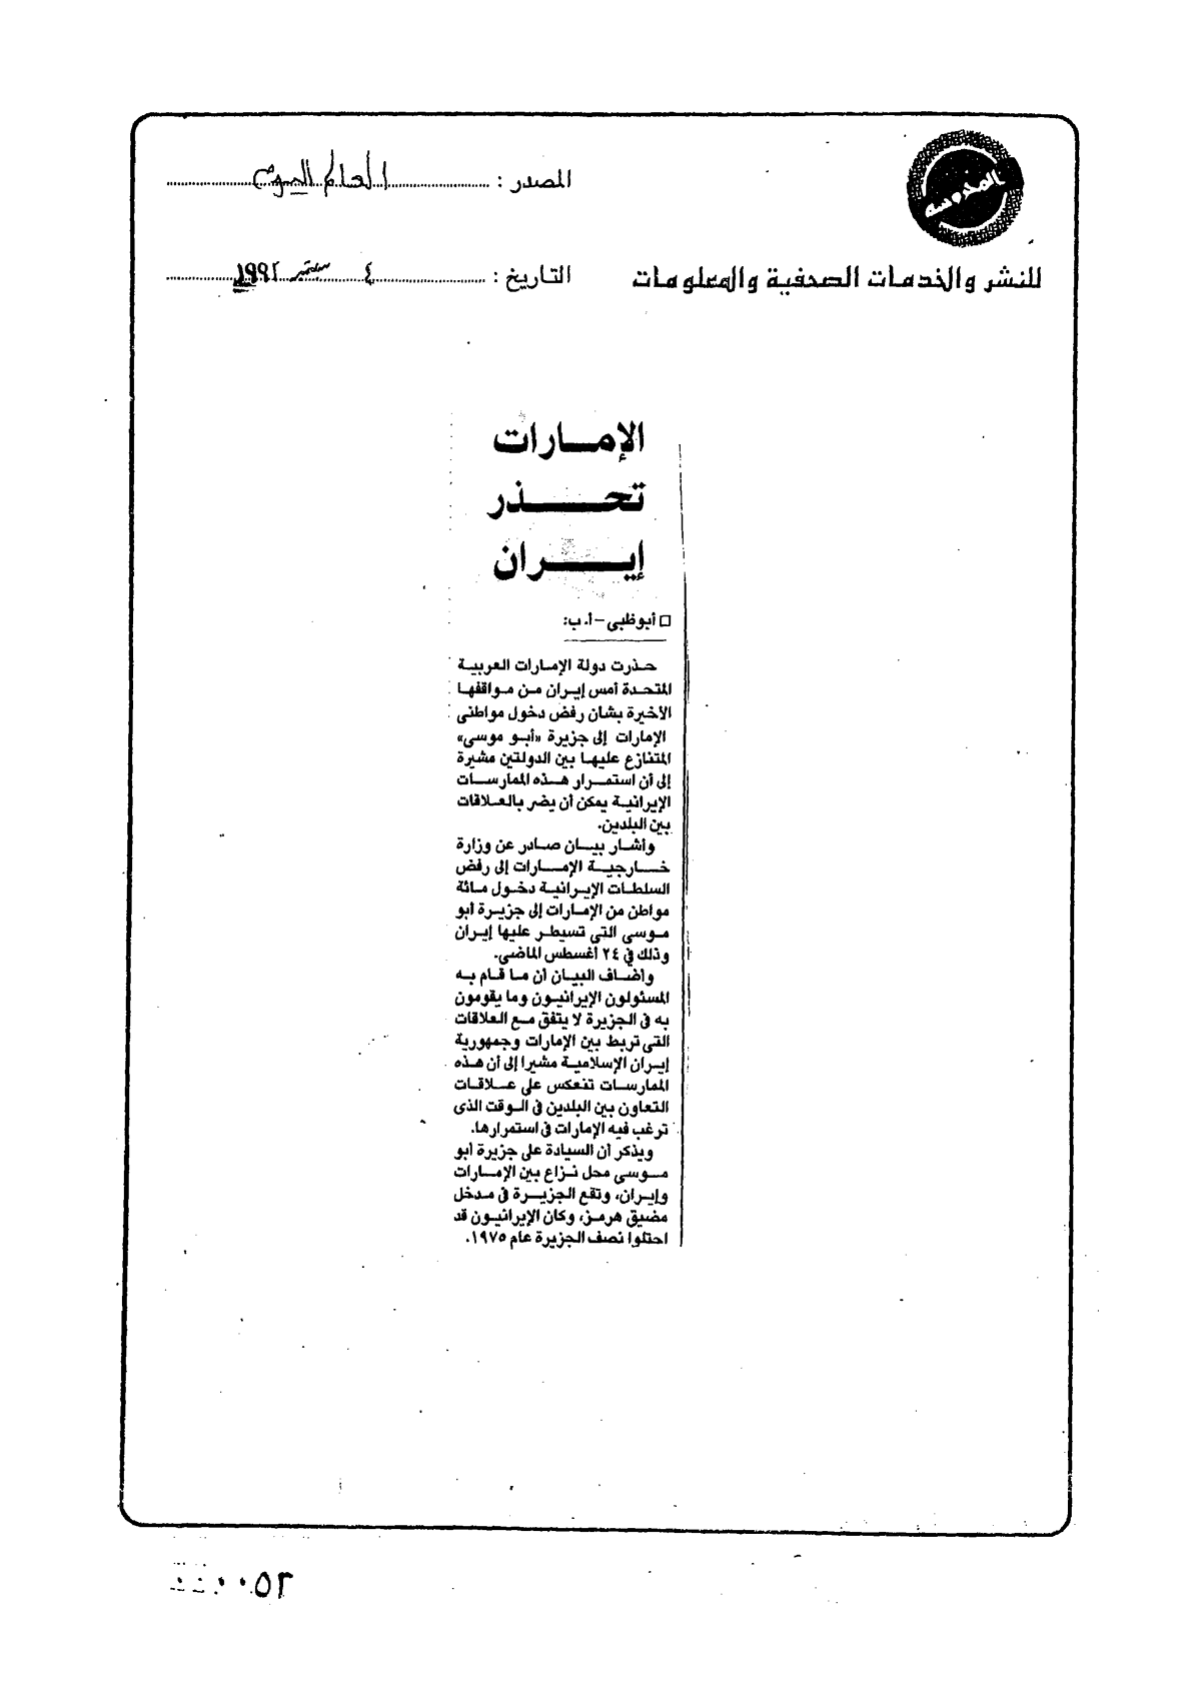 المحروسة
المصدر : العالم اليوم
للنشر والخدمات الصحفية والمعلومات
التاريخ : ٤ سبتمبر ١٩٩٢
الإمارات
تحذر
إيران
أبوظبى - أ. ب:
حذرت دولة الإمارات العربية
المتحدة أمس إيران من مواقفها
الأخيرة بشان رفض دخول مواطنى
الإمارات إلى جزيرة «أبو موسى»
المتنازع عليها بين الدولتين مشيرة
إلى أن استمرار هذه الممارسات
الإيرانية يمكن أن يضر بالعلاقات
بين البلدين.
واشار بيان صادر عن وزارة
خارجية الإمارات إلى رفض
السلطات الإيرانية دخول مائة
مواطن من الإمارات إلى جزيرة أبو
موسى التى تسيطر عليها إيران
وذلك فى ٢٤ أغسطس الماضى.
واضاف البيان أن ما قام به
المسئولون الإيرانيون وما يقومون
به فى الجزيرة لا يتفق مع العلاقات
التى تربط بين الإمارات وجمهورية
إيران الإسلامية مشيرا إلى أن هذه
الممارسات تنعكس على علاقات
التعاون بين البلدين فى الوقت الذى
ترغب فيه الإمارات فى استمرارها.
ويذكر أن السيادة على جزيرة أبو
موسى محل نزاع بين الإمارات
وإيران، وتقع الجزيرة فى مدخل
مضيق هرمز، وكان الإيرانيون قد
احتلوا نصف الجزيرة عام ١٩٧٥.
٠٠٥٢